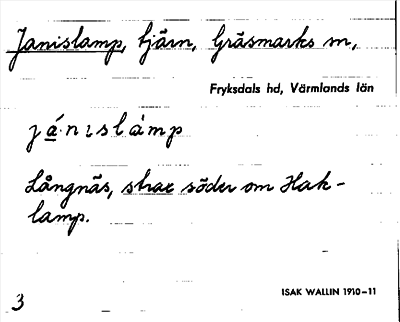 Janislamp, tjärn, Gräsmarks sn,
Fryksdals hd, Värmlands län
já̱·nɩslàmp
Långnäs, strax söder om Hak-
lamp.
ISAK WALLIN 1910-11
3